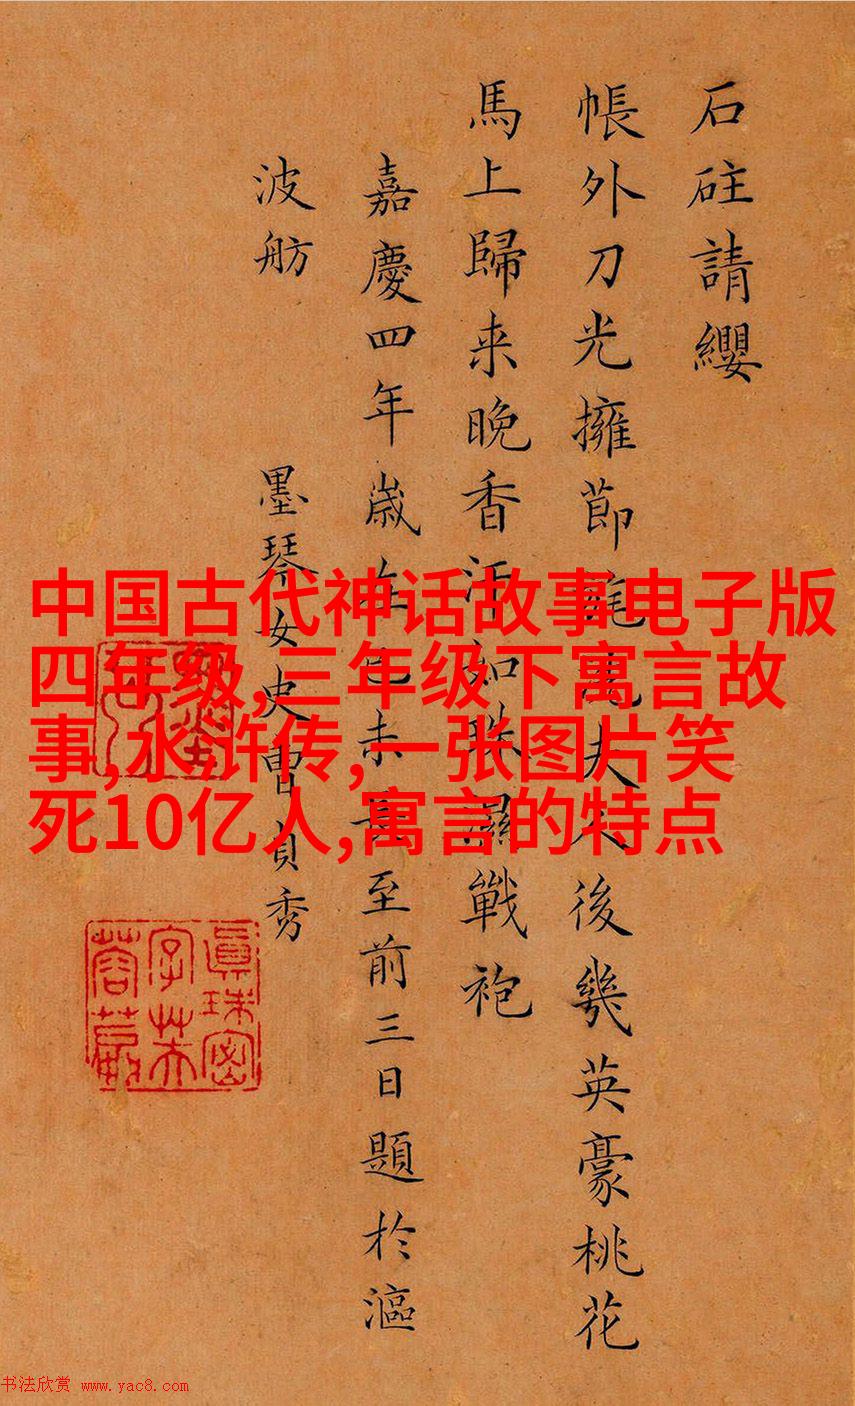 石砫請纓
帳外刀光擁節夫人後幾英豪桃花
馬上歸来晚香汗如珠濕戰袍
嘉慶四年歲在己未長至前三日題於漚
波舫 墨琴女史曹貞秀
中国古代神话故事电子版
四年级,三年级下寓言故
事,水浒传,一张图片笑
死10亿人,寓言的特点
真珠密
字芙
蓉
书法欣赏 www.yac8.com